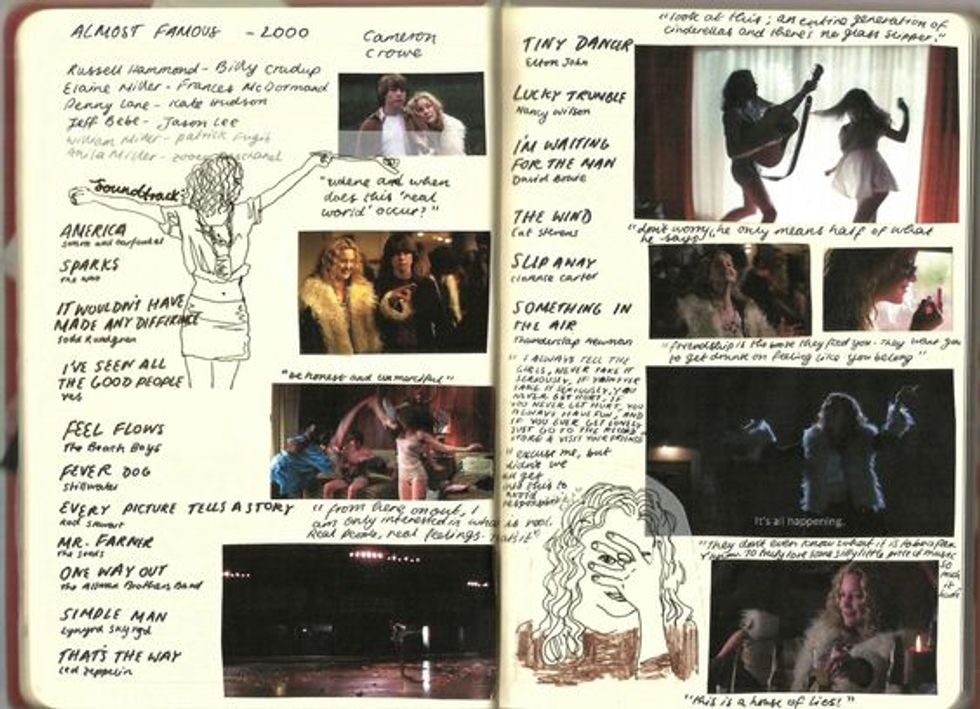 ALMOST FAMOUS - 2000
Cameron
Crowe
Russell Hammond - Billy Crudup
Elaine Miller - Frances McDormand
Penny Lane - Kate Hudson
Jeff Bebe - Jason Lee
William Miller - patrick Fugit
Anita Miller - zooey
Soundtrack:
"where and when
does this 'real
world' occur?"
AMERICA
simon and Garfunkel
SPARKS
The who
IT WOULDN'T HAVE
MADE ANY DIFFERENCE
Todd Rundgren
I'VE SEEN ALL
THE GOOD PEOPLE
Yes
"be honest and unmerciful"
FEEL FLOWS
The Beach Boys
FEVER DOG
Stillwater
EVERY PICTURE TELLS A STORY
Rod Stewart
"from here on out, I
am only interested in what is real.
Real people, real feelings. that's it"
MR. FARMER
The seeds
ONE WAY OUT
The Allman Brothers Band
SIMPLE MAN
Lynyrd Skynyrd
THAT'S THE WAY
Led Zeppelin
"look at this; an entire generation of
cinderellas and there's no glass slipper."
TINY DANCER
Elton John
LUCKY TRUMBLE
Nancy Wilson
I'M WAITING
FOR THE MAN
David Bowie
THE WIND
Cat Stevens
"don't worry, he only means half of what
he says"
SLIP AWAY
Clarence Carter
SOMETHING IN
THE AIR
Thunderclap Newman
"friendship is the booze they feed you. They want you
to get drunk on feeling like you belong"
"I ALWAYS TELL THE
GIRLS, NEVER TAKE IT
SERIOUSLY, IF YOU NEVER
TAKE IT SERIOUSLY, YOU
NEVER GET HURT, IF
YOU NEVER GET HURT, YOU
ALWAYS HAVE FUN, AND
IF YOU EVER GET LONELY
JUST GO TO THE RECORD
STORE & VISIT YOUR FRIENDS
"excuse me, but
didn't we
all get
into this to
avoid
It's all happening.
"They don't even know what it is to be a fan.
Y'know. To truly love some silly little piece of music
so
much
it
hurts
"this is a house of lies!"